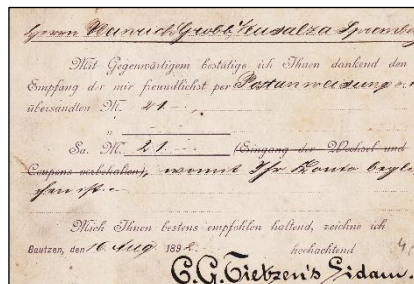 Herrn Heinrich Grobb, Neusalza Spremberg
Mit Gegenwärtigem bestätige ich Ihnen dankend den
Empfang der mir freundlichst per Postanweisung
übersandten M. 21.—,
"
Sa. M. 21.— (Eingang der Wechsel und
Coupons vorbehalten), womit Ihr Konto begli-
chen ist.—
Mich Ihnen bestens empfohlen haltend, zeichne ich
Bautzen, den 16 Aug 1892. hochachtend
C.G. Tietzen's Eidam.